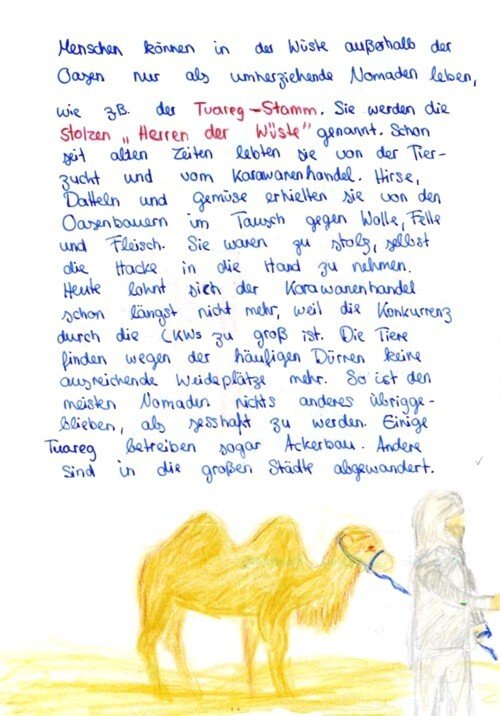 Menschen können in der Wüste außerhalb der
Oasen nur als umherziehende Nomaden leben,
wie zB. der Tuareg-Stamm. Sie werden die
stolzen "Herren der Wüste" genannt. Schon
seit alten Zeiten lebten sie von der Tier-
zucht und vom Karawanenhandel. Hirse,
Datteln und Gemüse erhielten sie von den
Oasenbauern im Tausch gegen Wolle, Felle
und Fleisch. Sie waren zu stolz, selbst
die Hacke in die Hand zu nehmen.
Heute lohnt sich der Karawanenhandel
schon längst nicht mehr, weil die Konkurrenz
durch die LKWs zu groß ist. Die Tiere
finden wegen der häufigen Dürren keine
ausreichende Weideplätze mehr. So ist den
meisten Nomaden nichts anderes übrigge-
blieben, als sesshaft zu werden. Einige
Tuareg betreiben sogar Ackerbau. Andere
sind in die großen Städte abgewandert.